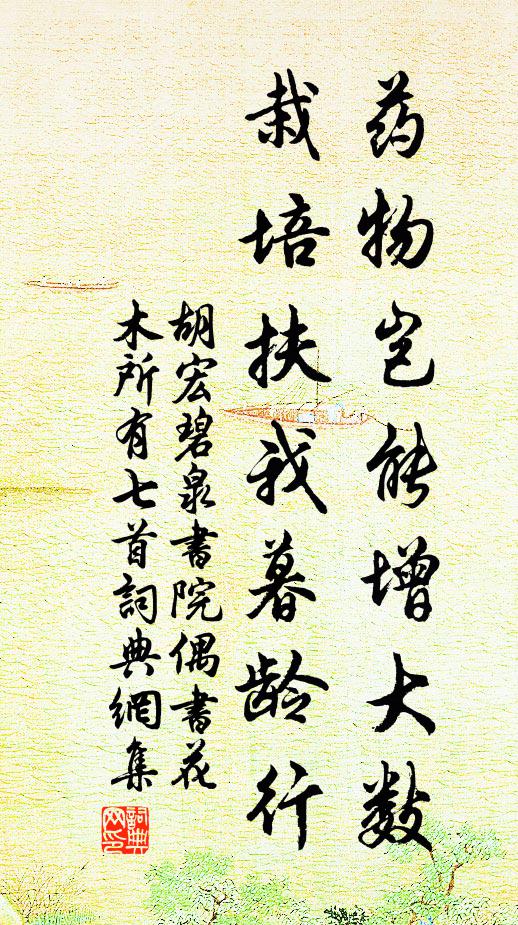 药物岂能增大数
栽培扶我暮龄行
胡宏碧泉書院偶書花
木所有七首詞典網集
詞典网印